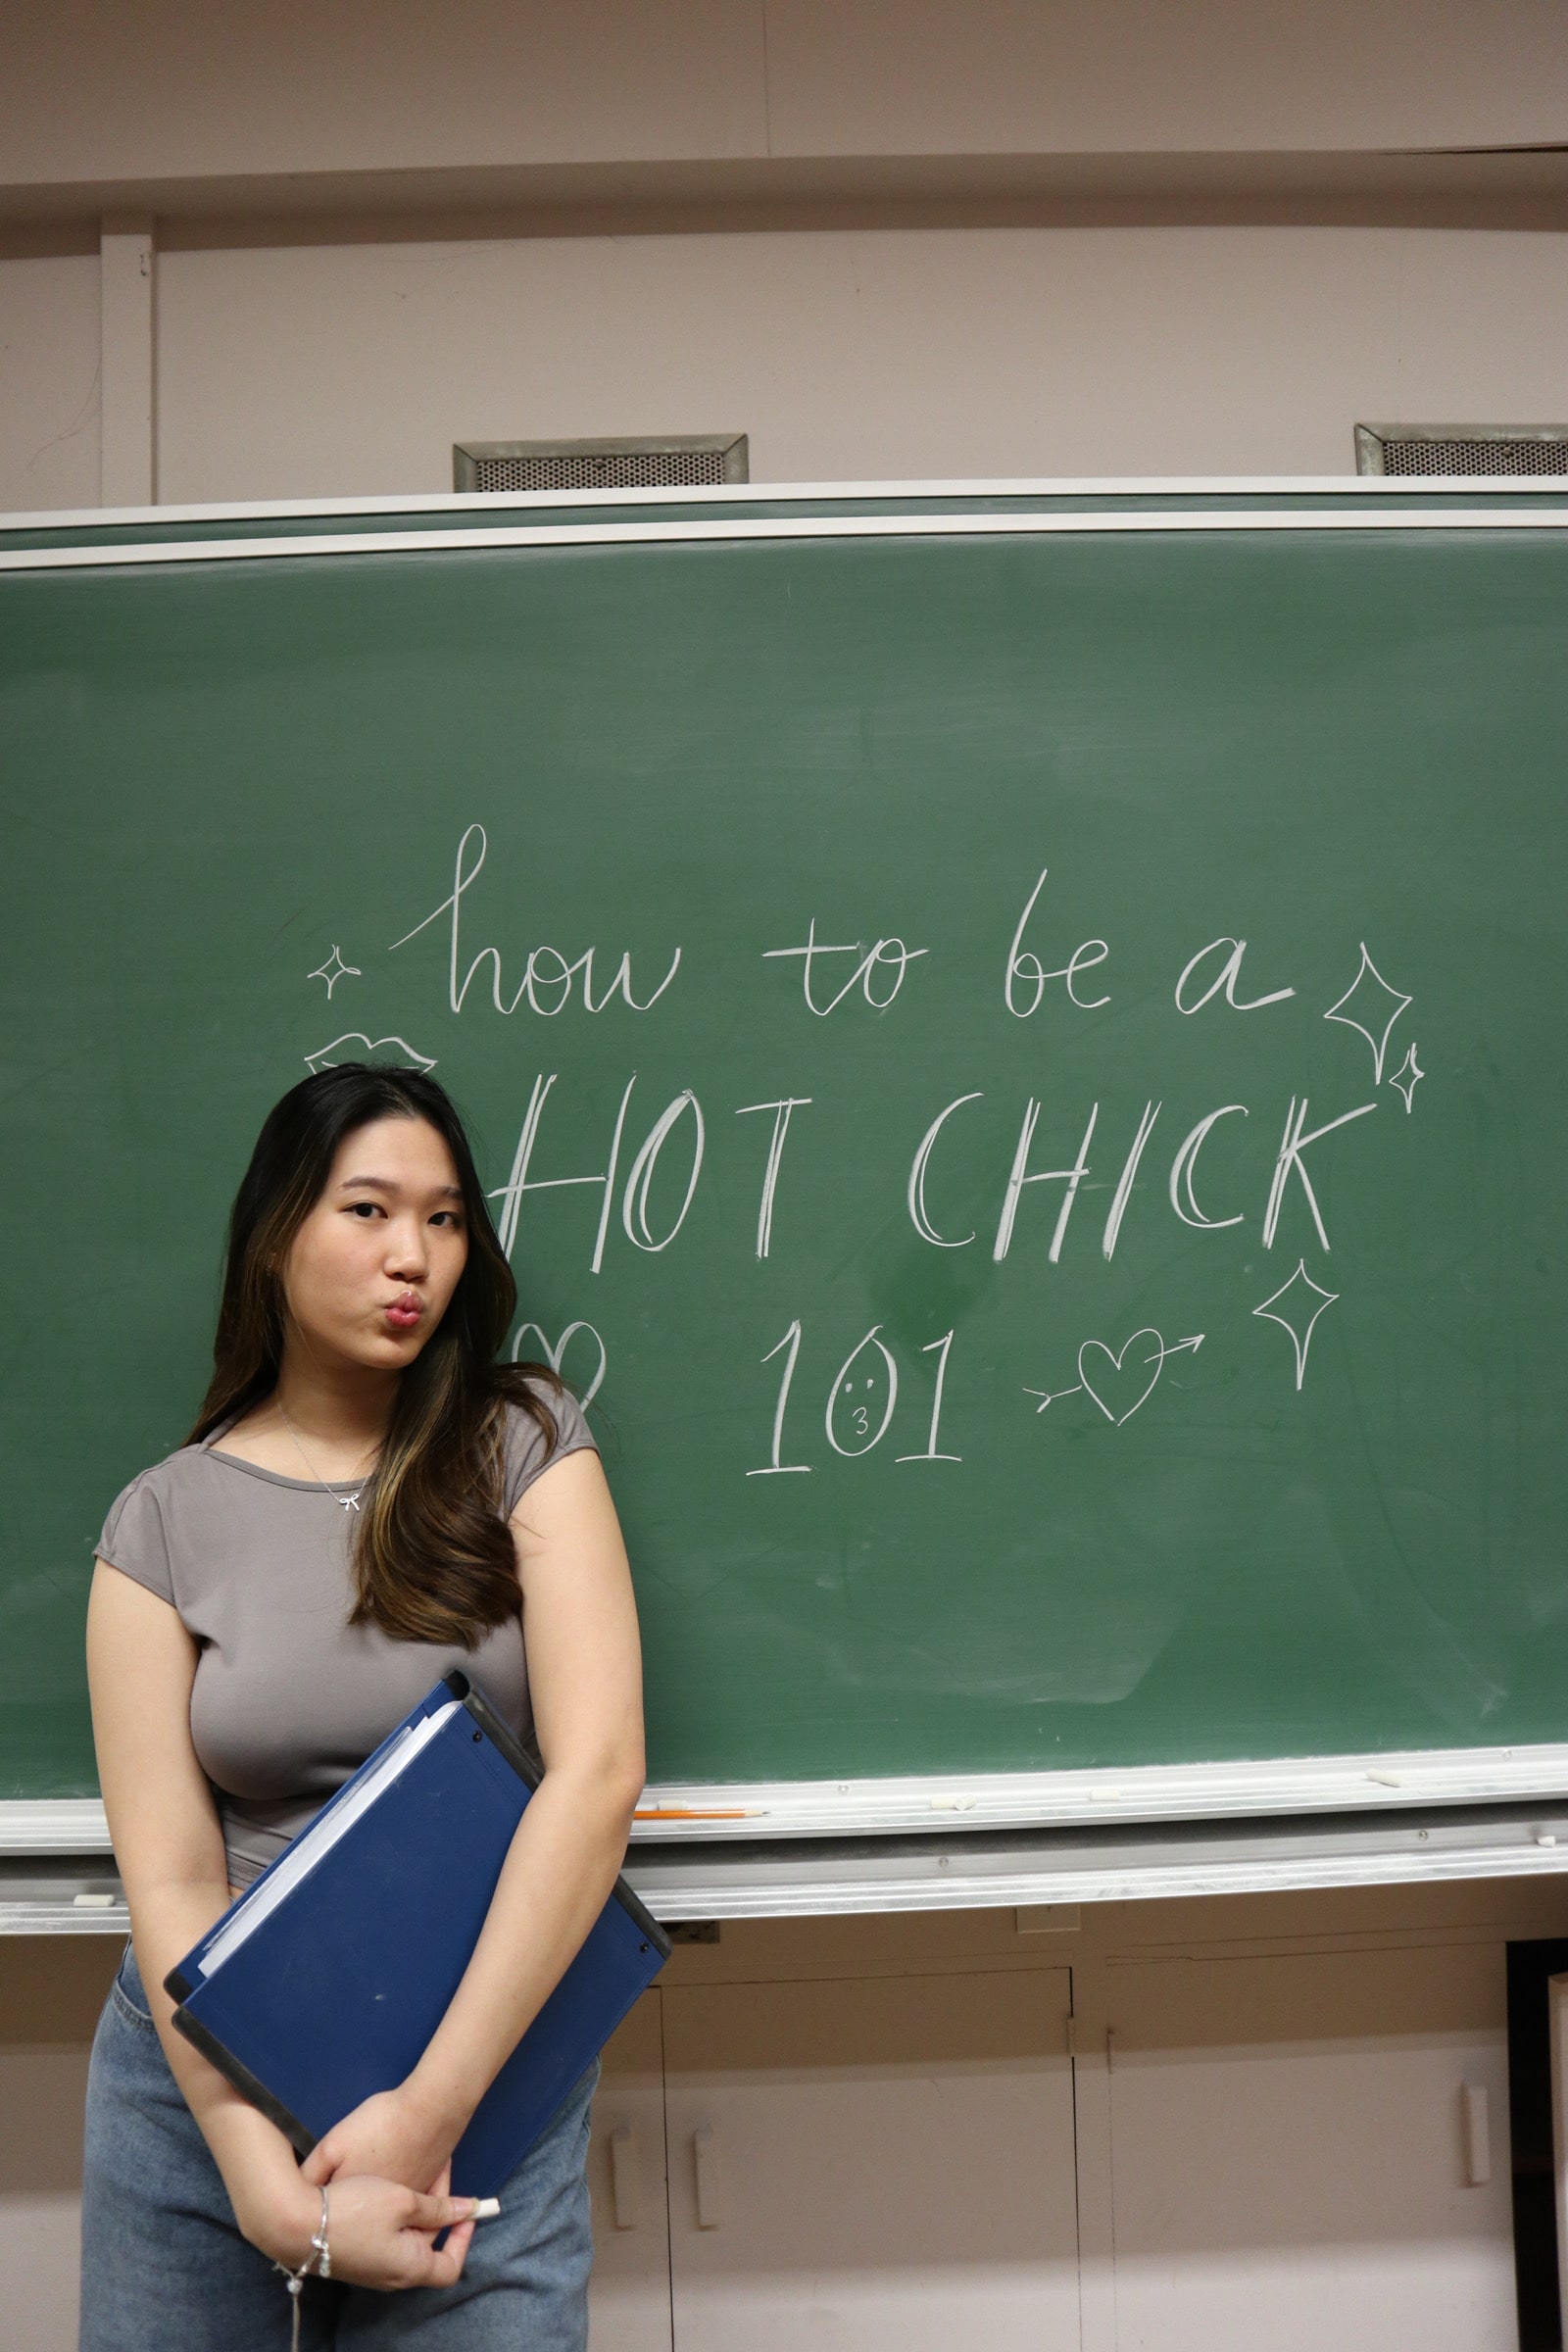 how to be a
HOT CHICK
101